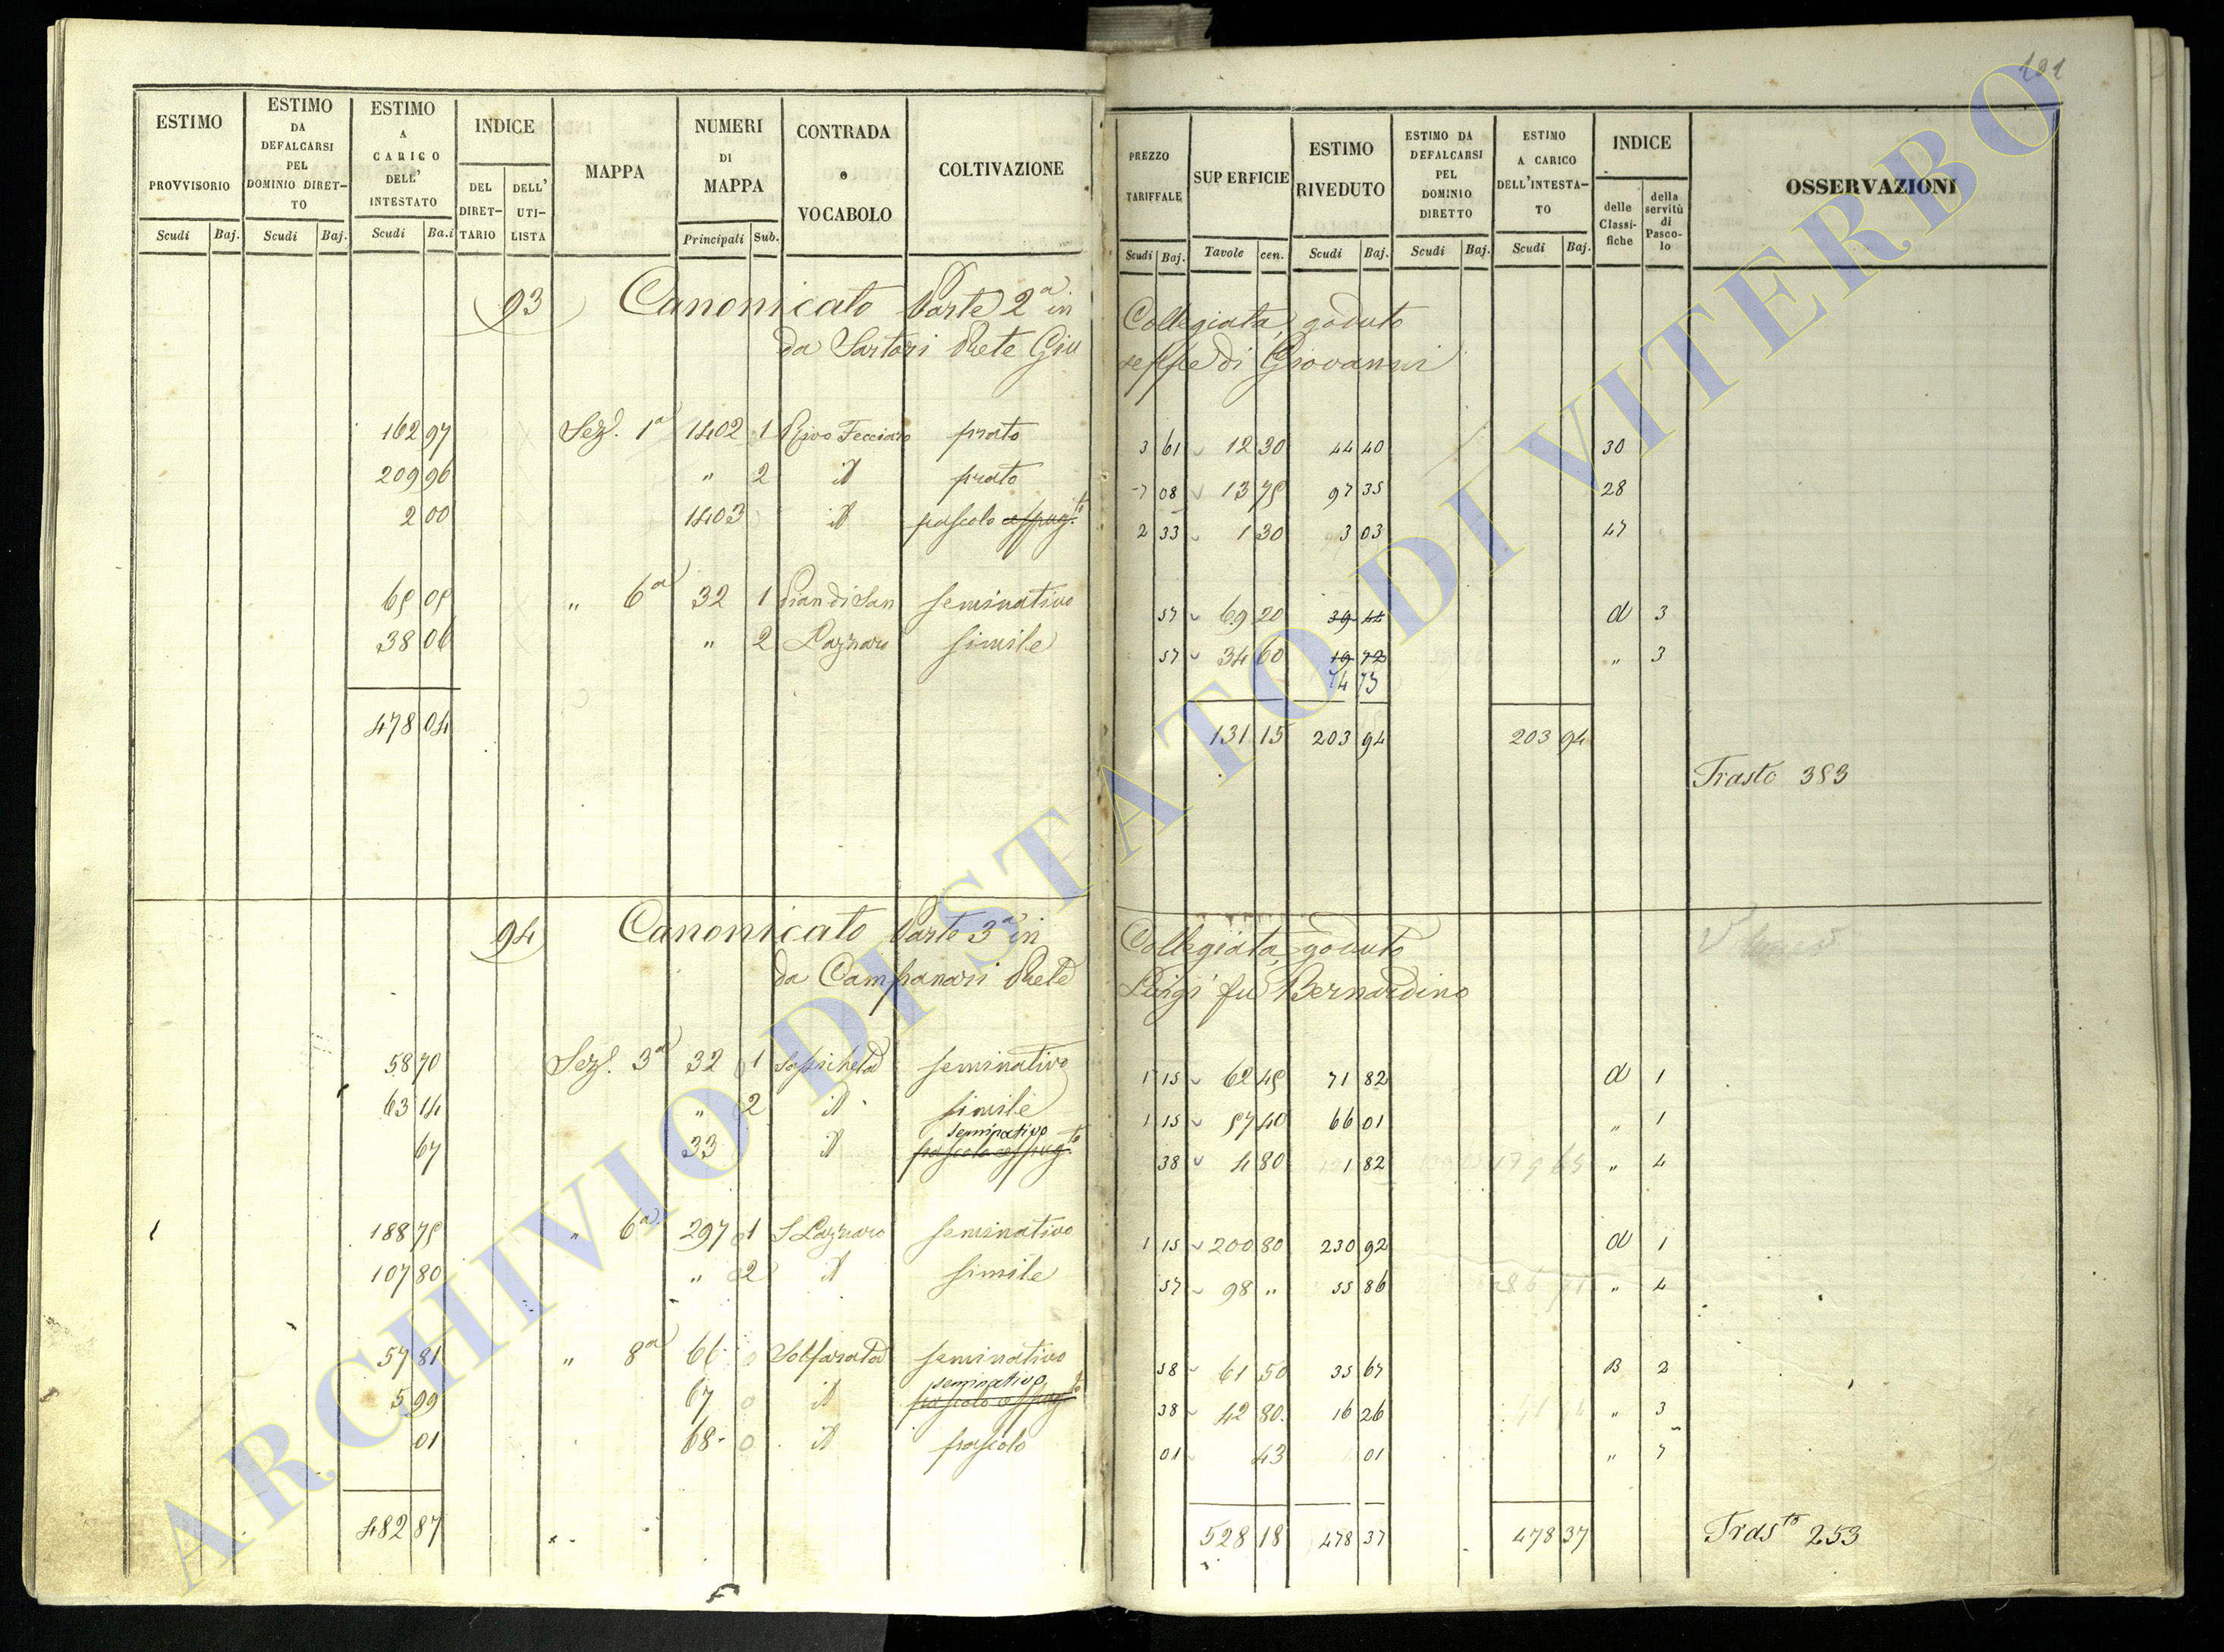 191
ESTIMO PROVVISORIO Scudi Baj.
ESTIMO DA DEFALCARSI PEL DOMINIO DIRET-TO Scudi Baj.
ESTIMO A CARICO DELL' INTESTATO Scudi Ba.i
INDICE DEL DIRET-TARIO DELL' UTI-LISTA
MAPPA
NUMERI DI MAPPA Principali Sub.
CONTRADA o VOCABOLO
COLTIVAZIONE
PREZZO TARIFFALE Scudi Baj.
SUPERFICIE Tavole cen.
ESTIMO RIVEDUTO Scudi Baj.
ESTIMO DA DEFALCARSI PEL DOMINIO DIRETTO Scudi Baj.
ESTIMO A CARICO DELL'INTESTA-TO Scudi Baj.
INDICE delle Classi-fiche della servitù di Pasco-lo
OSSERVAZIONI
93 Canonicato Parte 2a in Collegiata, goduto
da Sartori Prete Giu seppe di Giovanni
162 97 Sez. 1a 1402 1 Rivo Fecciaro prato 3 61 12 30 44 40 30
209 96 " 2 id prato 7 08 13 75 97 35 28
2 00 1403 id pascolo cespug.to 2 33 1 30 3 03 47
65 05 " 6a 32 1 Pian di San seminativo 57 69 20 39 44 d 3
38 06 " 2 Lazzaro simile 57 34 60 19 72 " 3
478 04 131 15 203 94 203 94
Trasto 383
94 Canonicato Parte 3a in Collegiata, goduto
da Campanari Prete Luigi fu Bernardino
58 70 Sez. 3a 32 1 seminativo 1 15 62 45 71 82 d 1
63 14 " 2 id simile 1 15 57 40 66 01 " 1
67 33 id seminativo pascolo cespug.to 38 4 80 1 82 " 4
188 75 " 6a 297 1 S Lazzaro seminativo 1 15 200 80 230 92 d 1
107 80 " 2 id simile 57 98 " 55 86 " 4
57 81 " 8a 66 Solfarata seminativo 58 61 50 35 67 B 2
5 99 67 id seminativo pascolo cespug.to 38 42 80 16 26 " 3
01 68 id pascolo 01 43 01 " 7
482 87 528 18 478 37 478 37 Trasto 253
ARCHIVIO DI STATO DI VITERBO